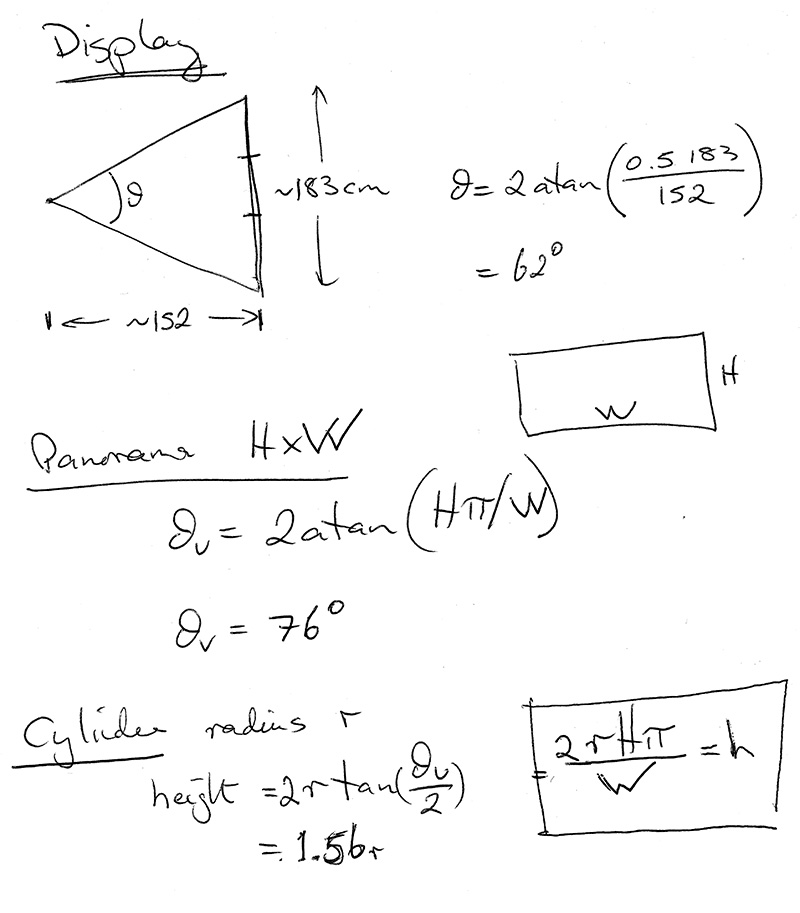 Display
ϑ
~183cm
ϑ = 2 atan (0.5 183 / 152)
= 62°
~152
H
W
Panorama H×W
ϑv = 2 atan (Hπ/W)
ϑv = 76°
Cylinder radius r
height = 2r tan(ϑv/2)
= 1.56r
= 2rHπ/W = h